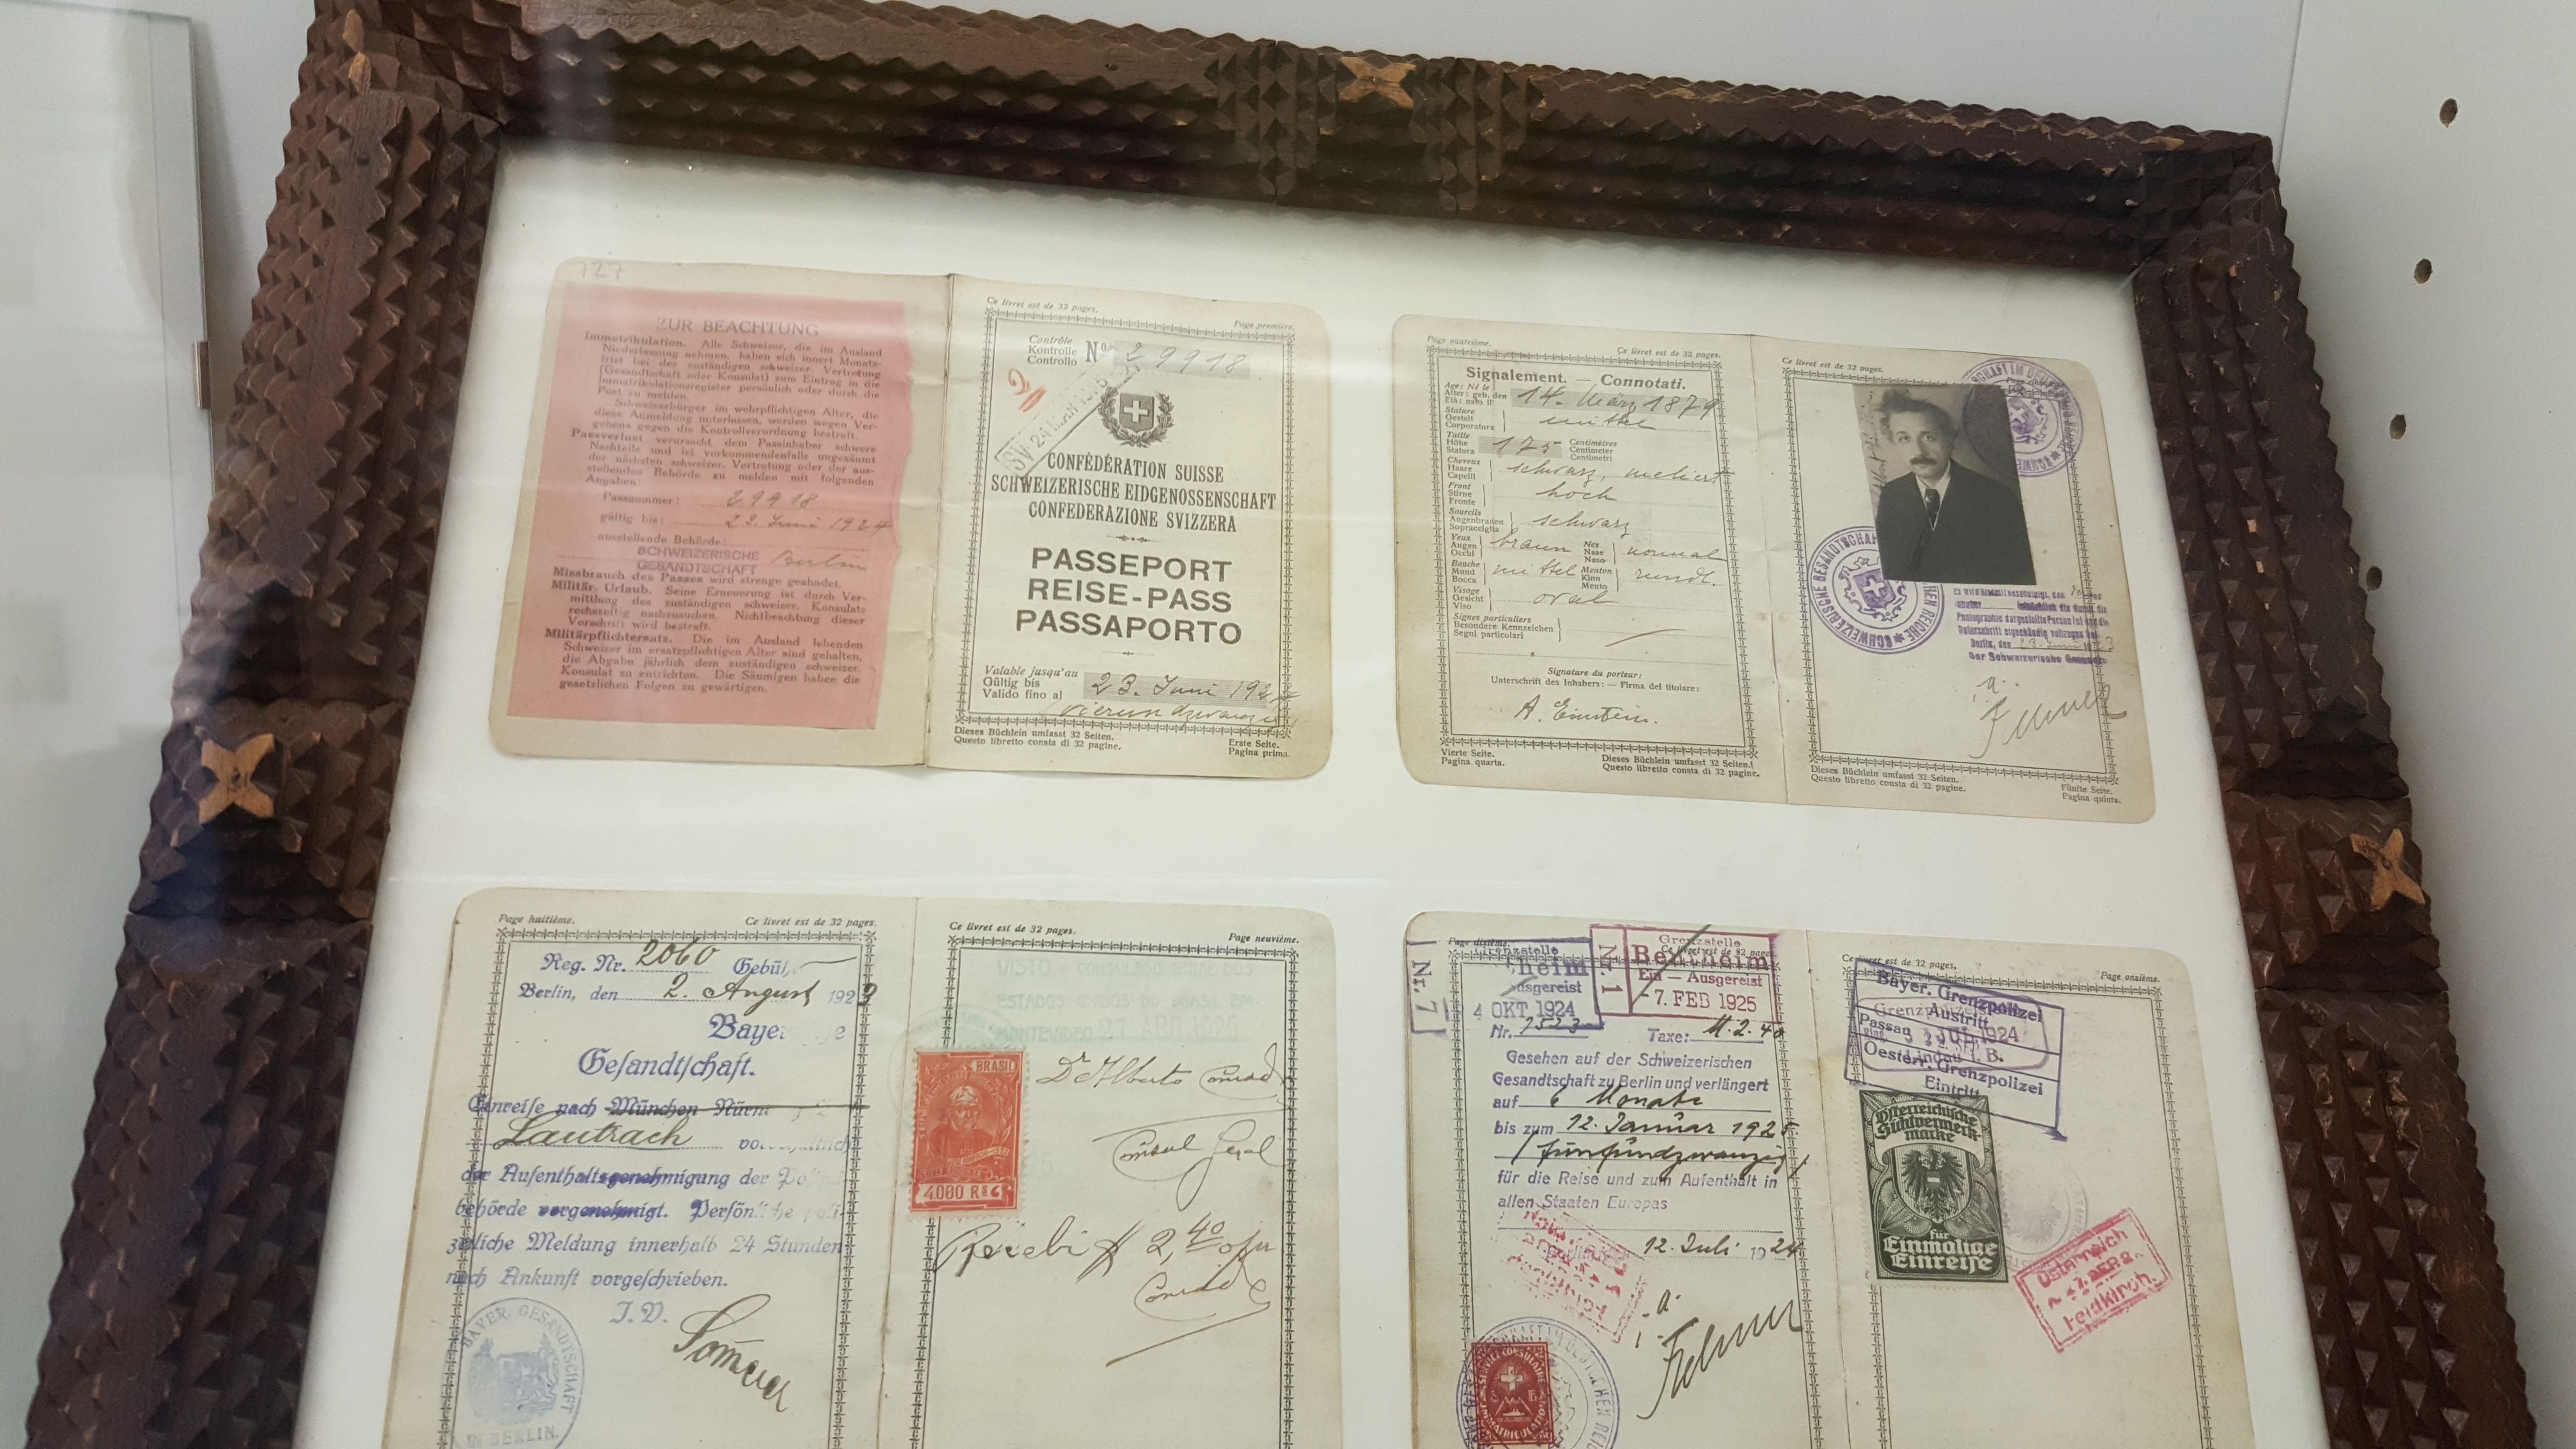 727
ZUR BEACHTUNG
Immatrikulation. Alle Schweizer, die im Ausland
Niederlassung nehmen, haben sich innert Monats-
frist bei der zuständigen schweizer. Vertretung
(Gesandtschaft oder Konsulat) zum Eintrag in die
Immatrikulationsregister persönlich oder durch die
Post zu melden.
Schweizerbürger im wehrpflichtigen Alter, die
diese Anmeldung unterlassen, werden wegen Ver-
gehens gegen die Kontrollverordnung bestraft.
Passverlust verursacht dem Passinhaber schwere
Nachteile und ist vorkommendenfalls ungesäumt
der nächsten schweizer. Vertretung oder der aus-
stellenden Behörde zu melden mit folgenden
Angaben:
Passnummer: 29918
gültig bis: 23. Juni 1924
ausstellende Behörde:
SCHWEIZERISCHE Berlin
GESANDTSCHAFT
Missbrauch des Passes wird strenge geahndet.
Militär. Urlaub. Seine Erneuerung ist durch Ver-
mittlung des zuständigen schweizer. Konsulats
rechtzeitig nachzusuchen. Nichtbeachtung dieser
Vorschrift wird bestraft.
Militärpflichtersatz. Die im Ausland lebenden
Schweizer im ersatzpflichtigen Alter sind gehalten,
die Abgabe jährlich dem zuständigen schweizer.
Konsulat zu entrichten. Die Säumigen haben die
gesetzlichen Folgen zu gewärtigen.
Ce livret est de 32 pages.
Page première.
Contrôle
Kontrolle
Controllo
No. 29918
CONFÉDÉRATION SUISSE
SCHWEIZERISCHE EIDGENOSSENSCHAFT
CONFEDERAZIONE SVIZZERA
PASSEPORT
REISE-PASS
PASSAPORTO
Valable jusqu'au
Gültig bis
Valido fino al
23. Juni 1924
vierundzwanzig
Dieses Büchlein umfasst 32 Seiten.
Questo libretto consta di 32 pagine.
Erste Seite.
Pagina prima.
Page quatrième.
Ce livret est de 32 pages.
Signalement. — Connotati.
Age: Né le
Alter: geb. den
Età: nato il
14. März 1879
Stature
Gestalt
Corporatura
mittel
Taille
Höhe
Statura
175
Centimètres
Centimeter
Centimetri
Cheveux
Haare
Capelli
schwarz, meliert
Front
Stirne
Fronte
hoch
Sourcils
Augenbrauen
Sopracciglia
schwarz
Yeux
Augen
Occhi
braun
Nez
Nase
Naso
normal
Bouche
Mund
Bocca
mittel
Menton
Kinn
Mento
rundl.
Visage
Gesicht
Viso
oval
Signes particuliers
Besondere Kennzeichen
Segni particolari
Signature du porteur:
Unterschrift des Inhabers: — Firma del titolare:
A. Einstein.
Vierte Seite.
Pagina quarta.
Dieses Büchlein umfasst 32 Seiten.
Questo libretto consta di 32 pagine.
Ce livret est de 32 pages.
Photographie dargestellte Person ist und die
Unterschrift eigenhändig vollzogen hat.
Berlin, den
Der Schweizerische Gesandte
Dieses Büchlein umfasst 32 Seiten.
Questo libretto consta di 32 pagine.
Fünfte Seite.
Pagina quinta.
Page huitième.
Ce livret est de 32 pages.
Reg. Nr. 2060
Berlin, den 2. August 1923
Gesandtschaft.
Einreise nach München
Lautrach
der Aufenthaltsgenehmigung der
behörde vorgenehmigt.
zeiliche Meldung innerhalb 24 Stunden
nach Ankunft vorgeschrieben.
I.V.
BAYER. GESANDTSCHAFT
IN BERLIN.
Ce livret est de 32 pages.
Page neuvième.
VISTO
MONTEVIDEO
BRASIL
4000 Rs
Dr Alberto Conrado
Consul Geral
Recebi $ 2,40
Conrado
Page dixième.
Nr. 7
Grenzstelle
heim
ausgereist
4 OKT 1924
Nr. 1
Grenzstelle
Bentheim
Ein — Ausgereist
-7. FEB 1925
Nr. 7523
Taxe: M. 2.40
Gesehen auf der Schweizerischen
Gesandtschaft zu Berlin und verlängert
auf 6 Monate
bis zum 12. Januar 1925
/fünfundzwanzig/
für die Reise und zum Aufenthalt in
allen Staaten Europas
12. Juli 1924
i. a.
Ce livret est de 32 pages.
Page onzième.
Bayer. Grenzpolizei
Austritt
Passau
Oesterr. Grenzpolizei
Eintritt
Österreichische
Sichtvermerk-
marke
für
Einmalige
Einreise
Österreich
Feldkirch.